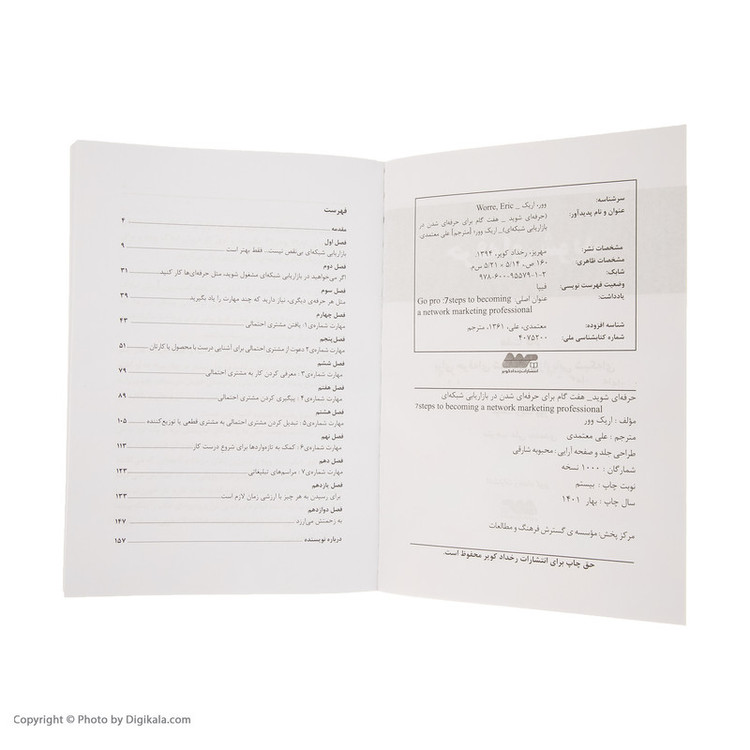 سرشناسه: وور، اریک _ Worre, Eric
عنوان و نام پدیدآور: (حرفه‌ای شوید _ هفت گام برای حرفه‌ای شدن در
بازاریابی شبکه‌ای)_ اریک وور؛ [مترجم] علی معتمدی.
مشخصات نشر: مهریز، رخداد کویر، ۱۳۹۴.
مشخصات ظاهری: ۱۶۰ ص.، ۵/۱۴ × ۵/۲۱ س‌م.
شابک: ۹۷۸-۶۰۰-۹۵۵۷۹-۱-۲
وضعیت فهرست نویسی: فیپا
یادداشت: عنوان اصلی: Go pro :7steps to becoming
a network marketing professional
شناسه افزوده: معتمدی، علی، ۱۳۶۱، مترجم
شماره کتابشناسی ملی: ۴۰۷۵۲۰۰
انتشارات رخداد کویر
حرفه‌ای شوید_ هفت گام برای حرفه‌ای شدن در بازاریابی شبکه‌ای
7steps to becoming a network marketing professional
مؤلف : اریک وور
مترجم : علی معتمدی
طراحی جلد و صفحه آرایی : محبوبه شارقی
شمارگان : ۱۰۰۰ نسخه
نوبت چاپ : بیستم
سال چاپ : بهار ۱۴۰۱
مرکز پخش: مؤسسه ی گسترش فرهنگ و مطالعات
حق چاپ برای انتشارات رخداد کویر محفوظ است.
فهرست
مقدمه ۴
فصل اول
بازاریابی شبکه‌ای بی‌نقص نیست... فقط بهتر است ۹
فصل دوم
اگر می‌خواهید در بازاریابی شبکه‌ای مشغول شوید، مثل حرفه‌ای‌ها کار کنید ۳۱
فصل سوم
مثل هر حرفه‌ی دیگری، نیاز دارید که چند مهارت را یاد بگیرید. ۳۹
فصل چهارم
مهارت شماره‌ی۱: یافتن مشتری احتمالی ۴۳
فصل پنجم
مهارت شماره‌ی۲:دعوت از مشتری احتمالی برای آشنایی درست با محصول یا کارتان ۵۱
فصل ششم
مهارت شماره‌ی۳ : معرفی کردن کار به مشتری احتمالی ۷۹
فصل هفتم
مهارت شماره‌ی۴: پیگیری کردن مشتری احتمالی ۸۹
فصل هشتم
مهارت شماره‌ی۵: تبدیل کردن مشتری احتمالی به مشتری قطعی یا توزیع‌کننده ۱۰۵
فصل نهم
مهارت شماره‌ی۶: کمک به تازه‌واردها برای شروع درست کار ۱۱۳
فصل دهم
مهارت شماره‌ی۷: مراسم‌های تبلیغاتی ۱۲۳
فصل یازدهم
برای رسیدن به هر چیز با ارزشی زمان لازم است ۱۳۳
فصل دوازدهم
به زحمتش می‌ارزد ۱۴۷
درباره نویسنده ۱۵۷
Copyright © Photo by Digikala.com